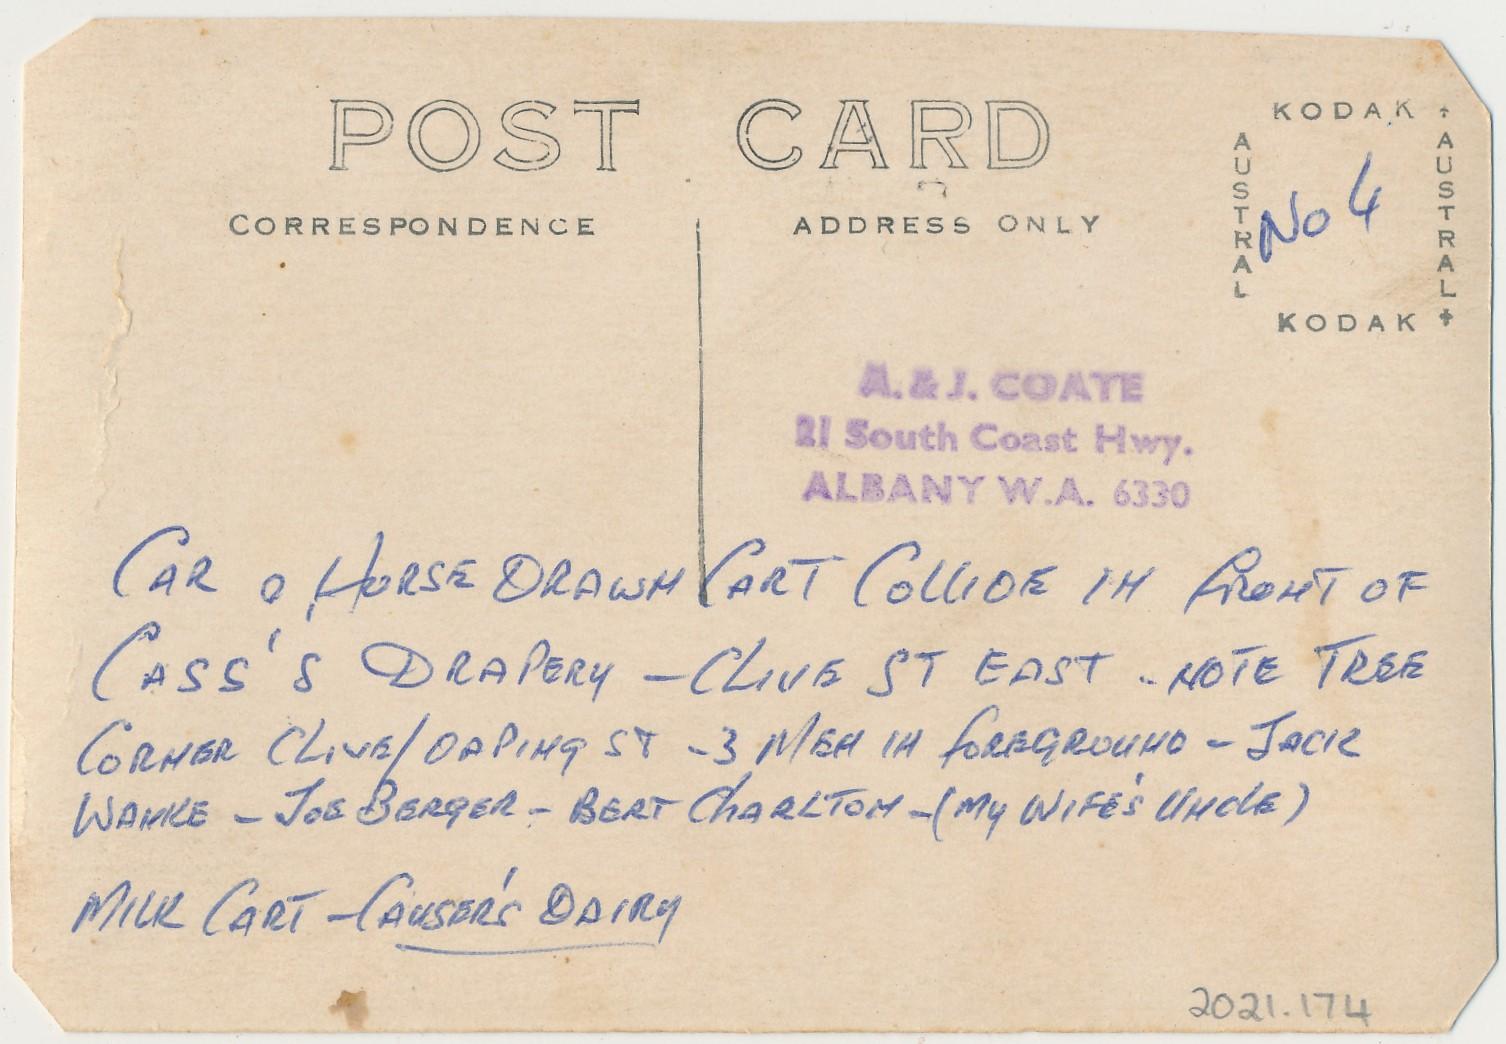 POST CARD
CORRESPONDENCE
ADDRESS ONLY
KODAK
AUSTRAL
AUSTRAL
KODAK
No 4
A. & J. COATE
21 South Coast Hwy.
ALBANY W.A. 6330
CAR & HORSE DRAWN CART COLLIDE IN FRONT OF
CASS'S DRAPERY - CLIVE ST EAST - NOTE TREE
CORNER CLIVE/DAPING ST - 3 MEN IN FOREGROUND - JACK
WANKE - JOE BERGER - BERT CHARLTON - (MY WIFE'S UNCLE)
MILK CART - CAUSER'S DAIRY
2021.174